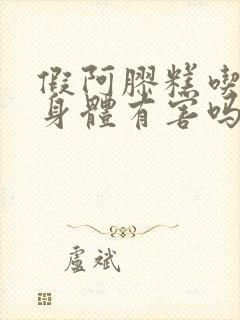 假阿膠糕喫
身體有害吗
盧斌